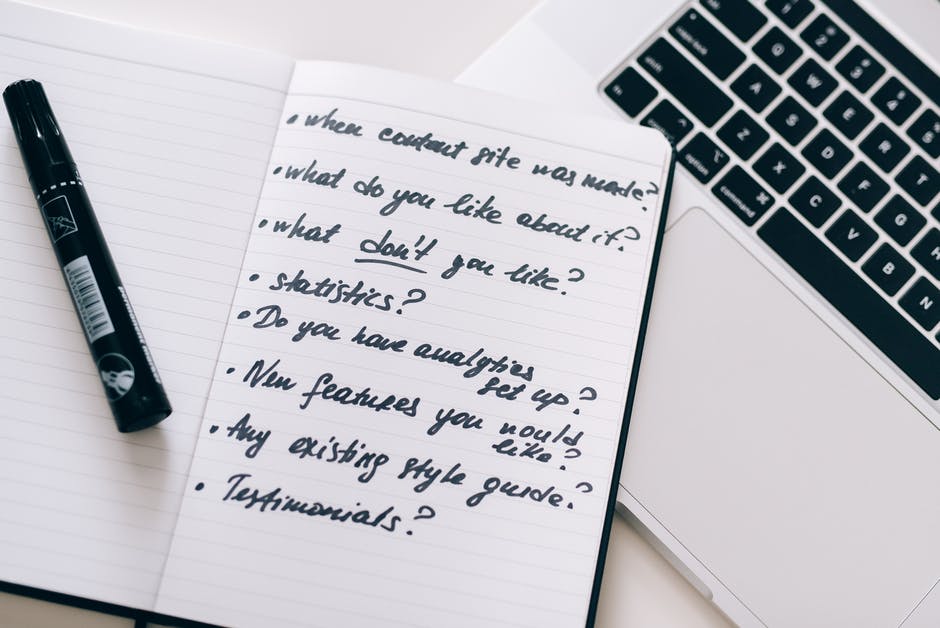 • when content site was made?
• what do you like about it?
• what don't you like?
• statistics?
• Do you have analytics
set up?
• New features you would
like?
• Any existing style guide?
• Testimonials?
@ 2
# 3
$ 4
Q W E R T
caps lock A S D F G
shift Z X C V B N
fn option command ⌘